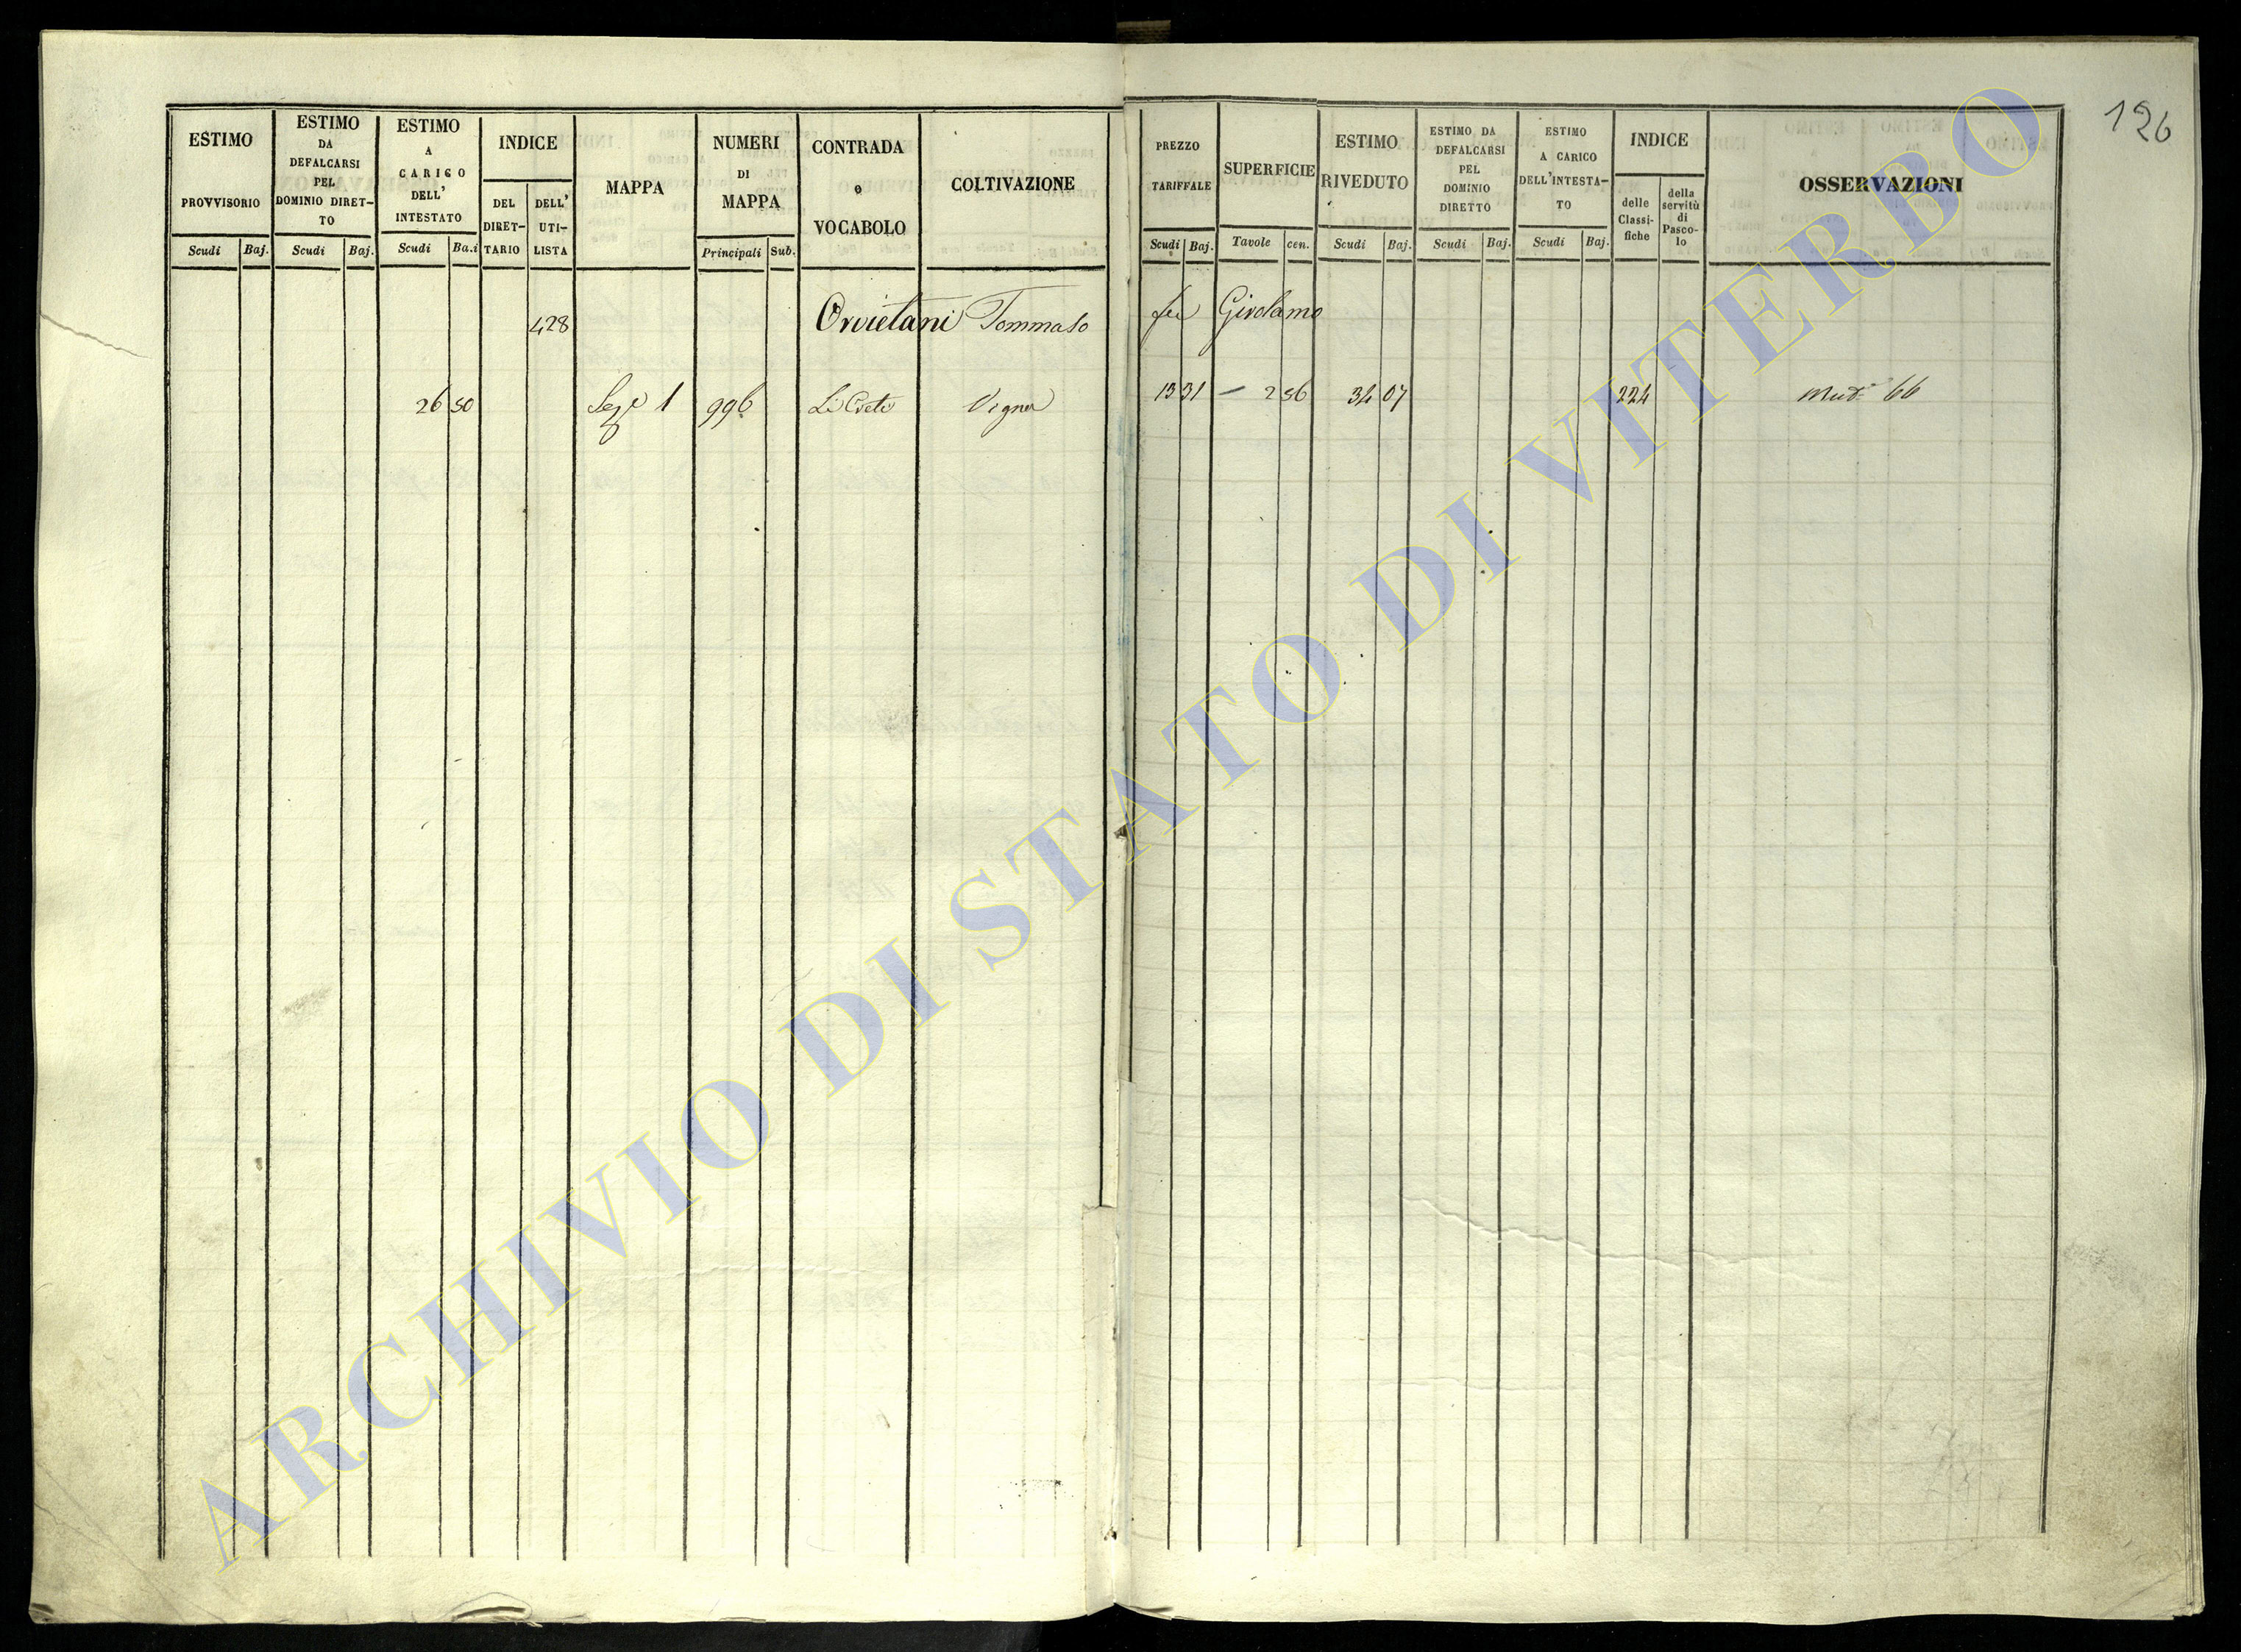 126
ESTIMO PROVVISORIO
Scudi Baj.
ESTIMO DA DEFALCARSI PEL DOMINIO DIRETTO
Scudi Baj.
ESTIMO A CARICO DELL' INTESTATO
Scudi Ba.i
INDICE
DEL DIRETTARIO
DELL' UTILISTA
MAPPA
NUMERI DI MAPPA
Principali Sub.
CONTRADA o VOCABOLO
COLTIVAZIONE
PREZZO TARIFFALE
Scudi Baj.
SUPERFICIE
Tavole cen.
ESTIMO RIVEDUTO
Scudi Baj.
ESTIMO DA DEFALCARSI PEL DOMINIO DIRETTO
Scudi Baj.
ESTIMO A CARICO DELL'INTESTATO
Scudi Baj.
INDICE
delle Classifiche
della servitù di Pascolo
OSSERVAZIONI
428 Orvietani Tommaso fu Girolamo
26 50 Sez.e 1 996 Li Creti Vigna 13 31 – 2 56 34 07 224 Mut. 66
ARCHIVIO DI STATO DI VITERBO